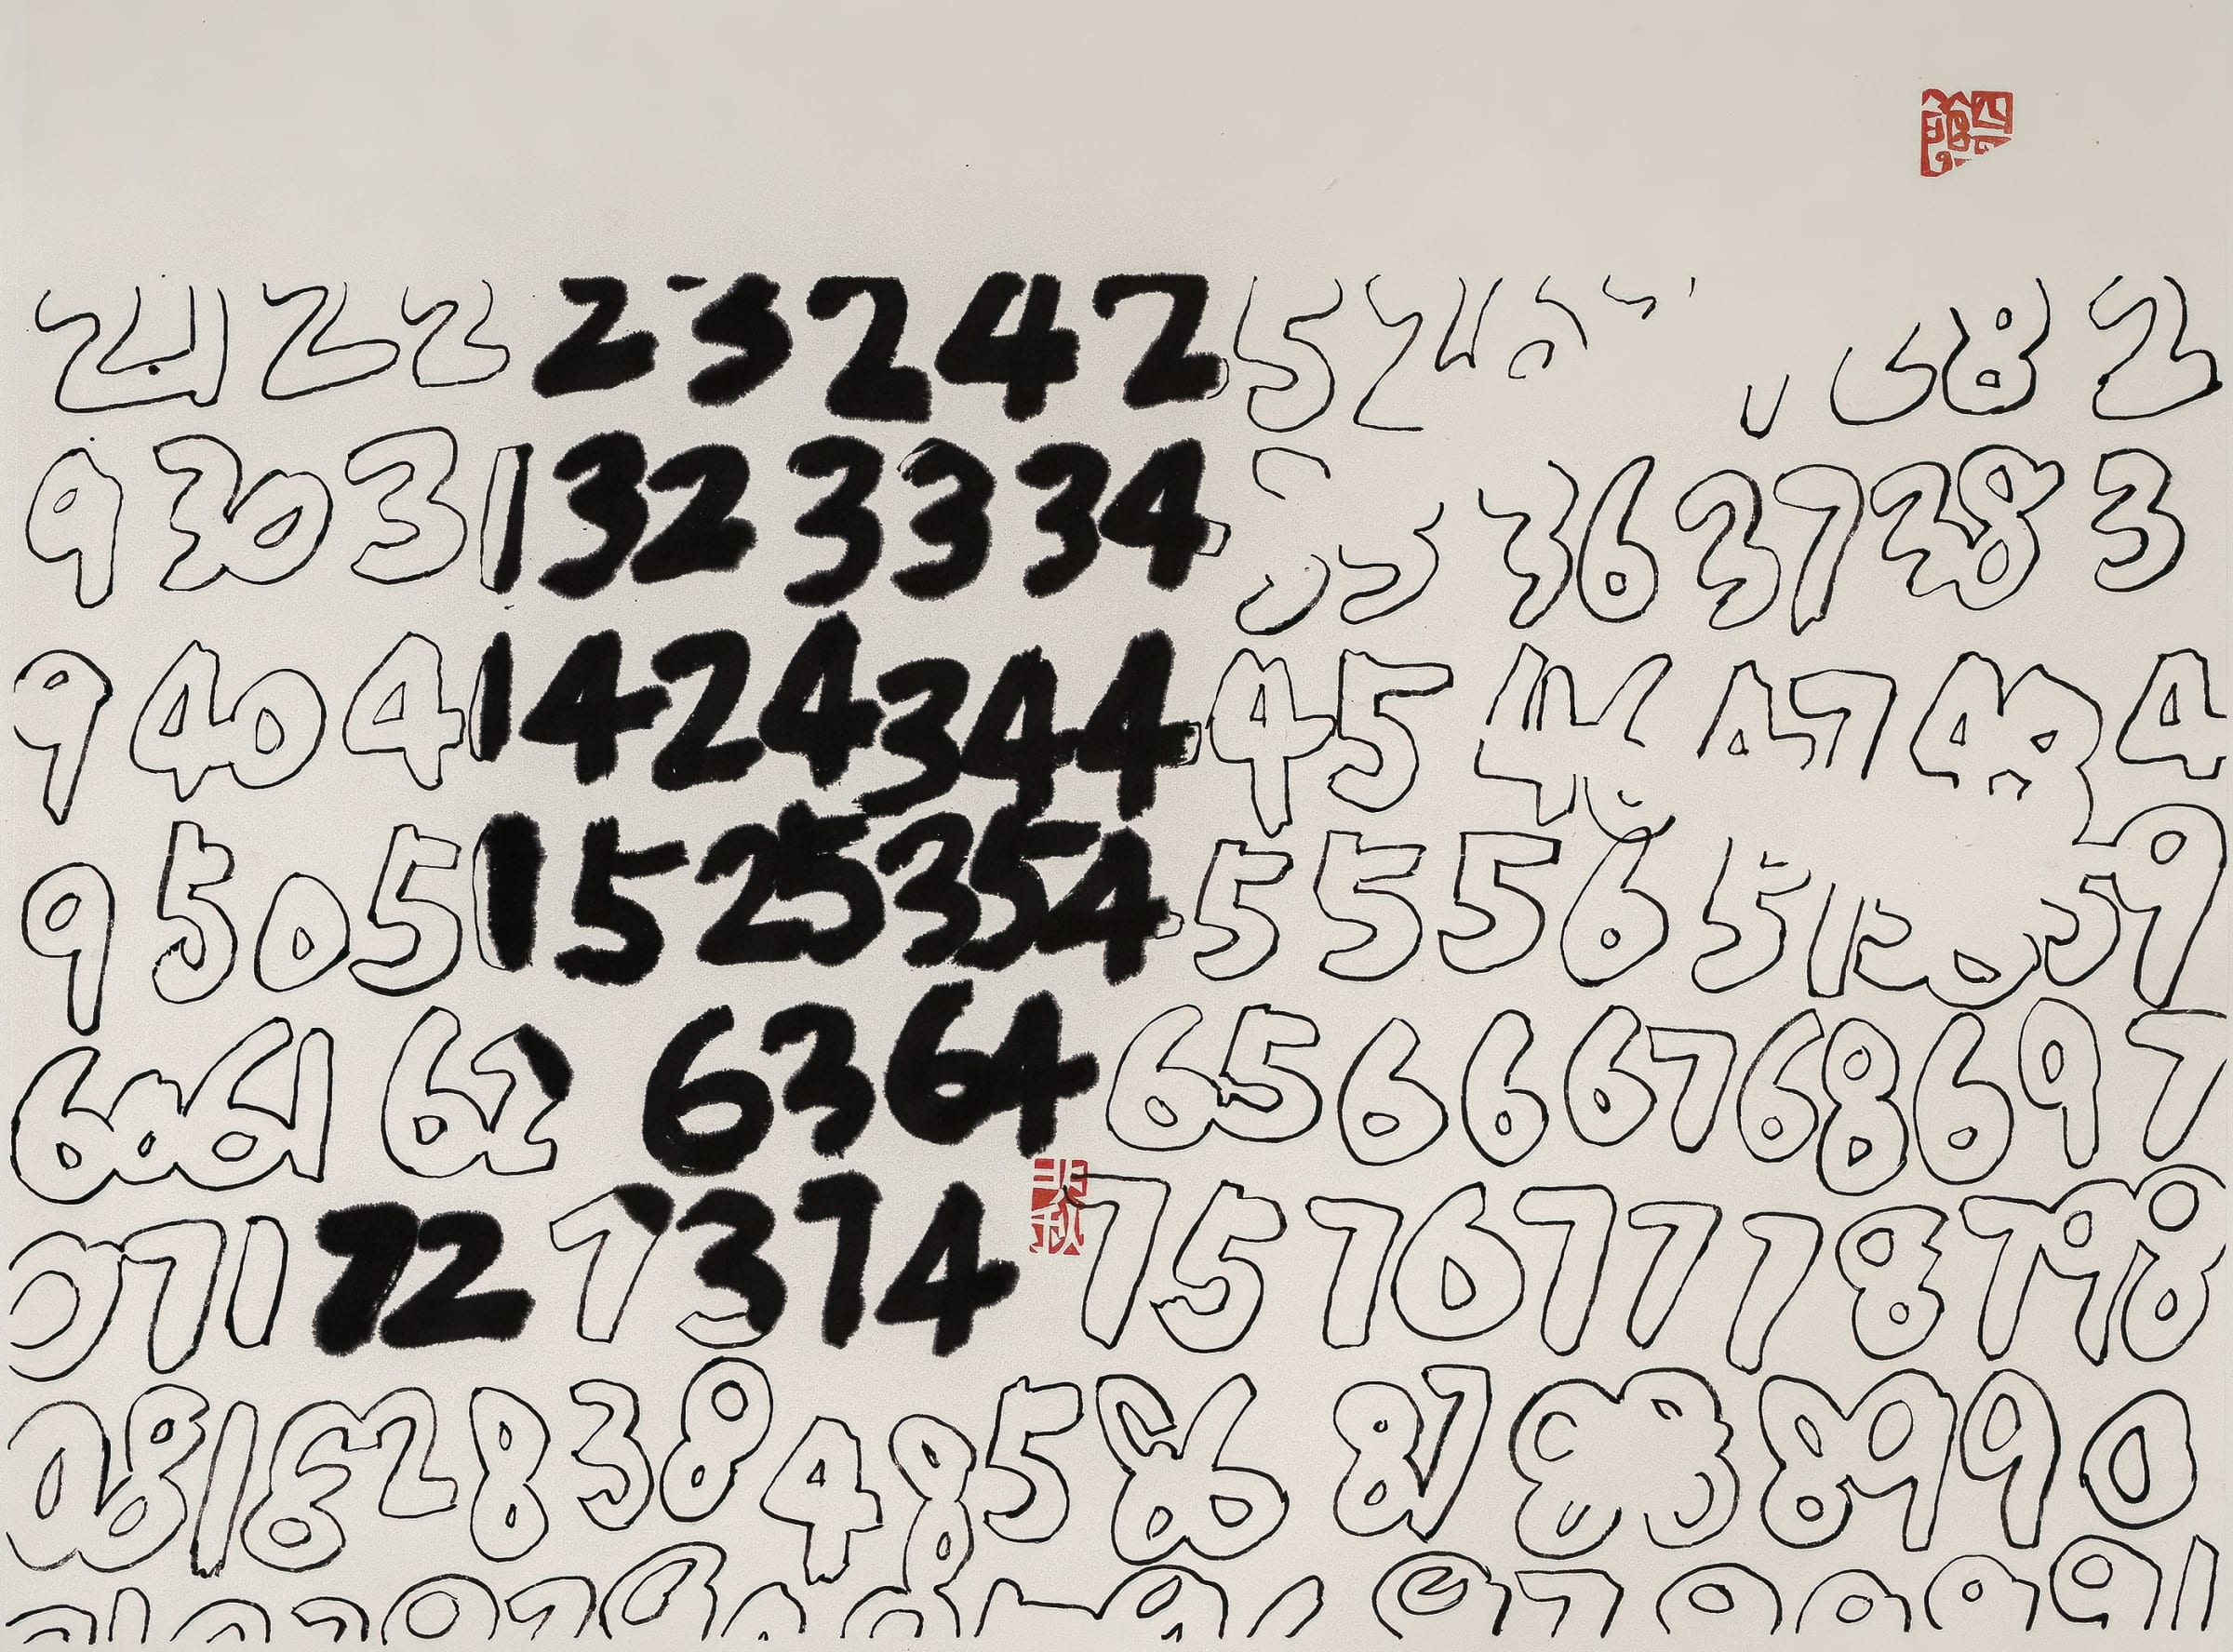 21 22 23 24 25 2 8 2
9 30 31 32 33 34 35 36 37 38 3
9 40 41 42 43 44 45 46 47 48 4
9 50 51 52 53 54 55 56 57 58 59
60 61 62 63 64 65 66 67 68 69 7
0 71 72 73 74 75 76 77 78 79 8
0 81 82 83 84 85 86 87 88 89 90